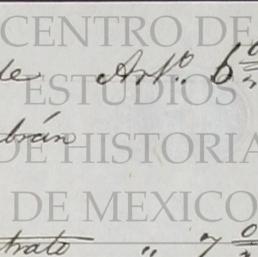 CENTRO DE
de Art.o 6
ESTUDIOS
brán
DE HISTORIA
DE MEXICO
trato " 7